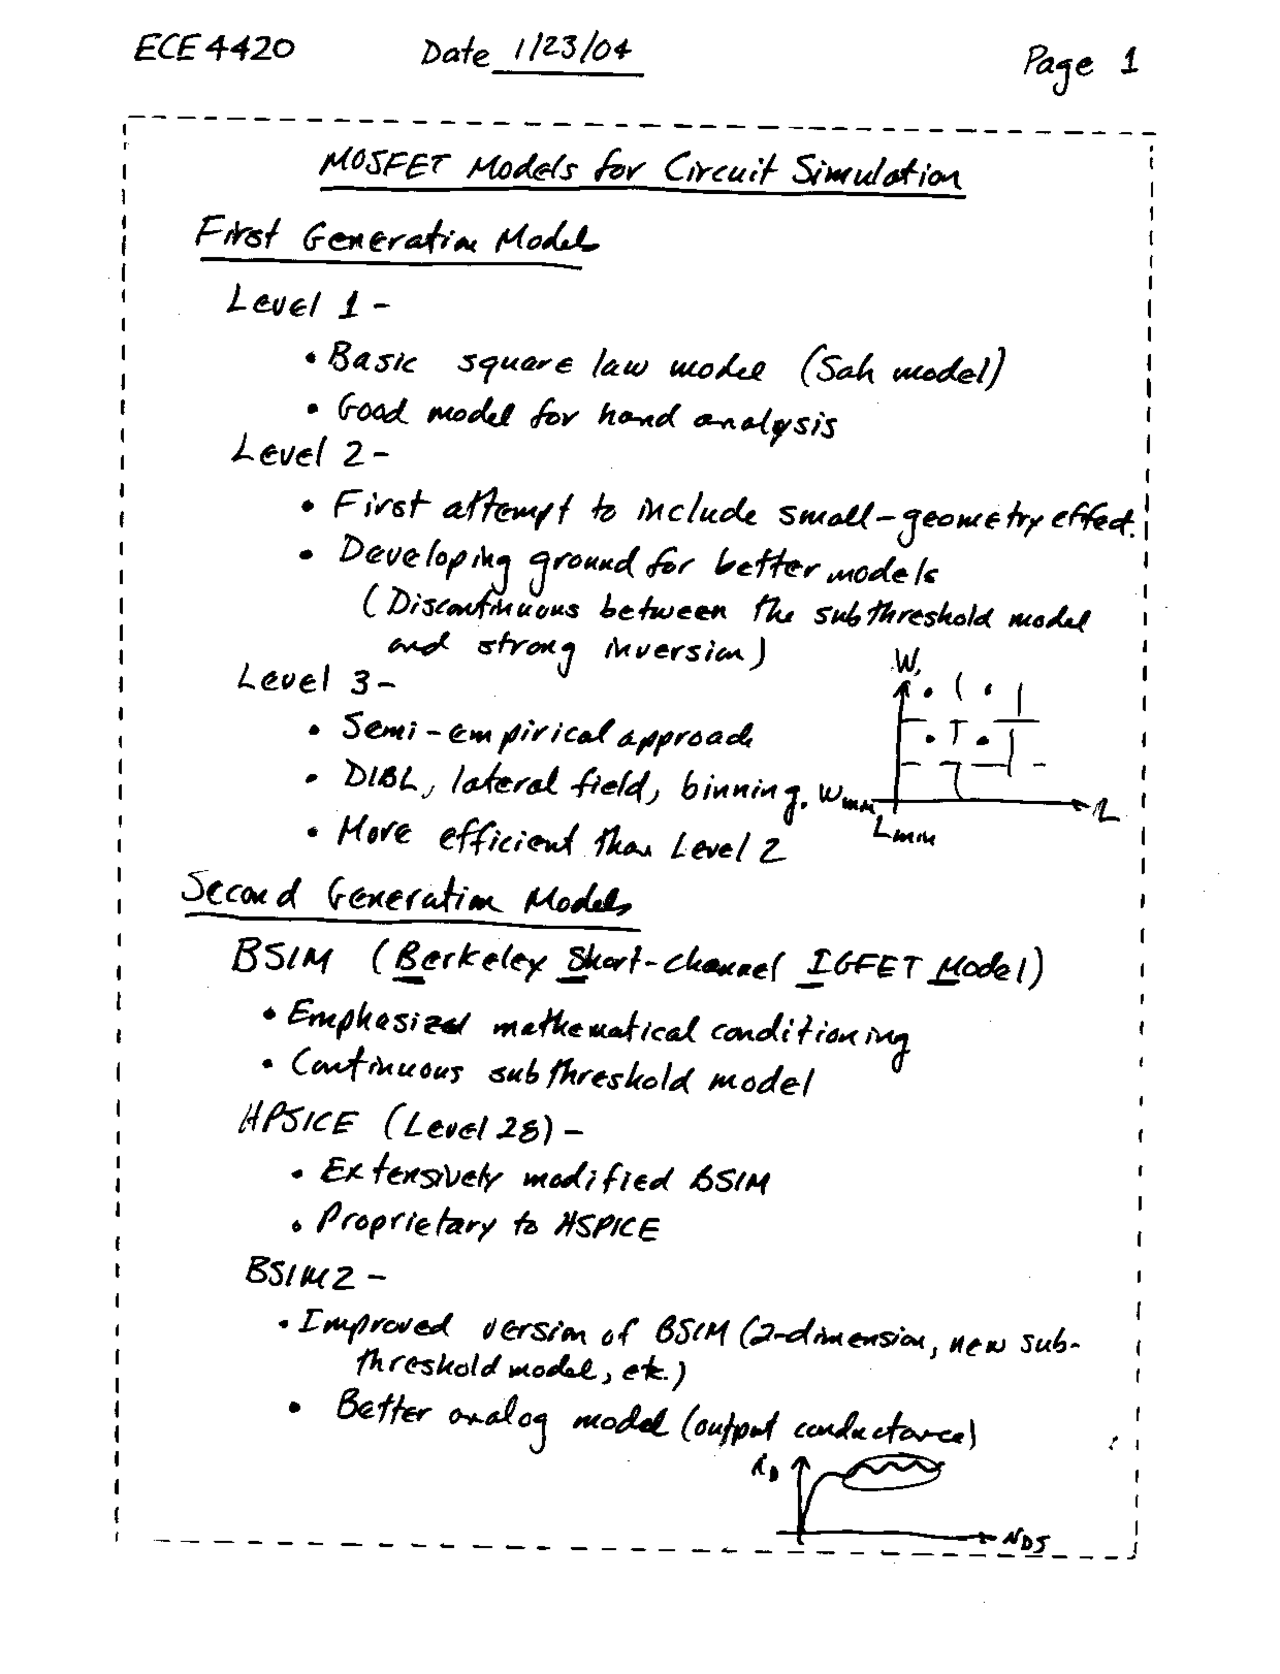 ECE 4420 Date 1/23/04 Page 1
MOSFET Models for Circuit Simulation
First Generation Models
Level 1 -
• Basic square law model (Sah model)
• Good model for hand analysis
Level 2 -
• First attempt to include small-geometry effect.
• Developing ground for better models
(Discontinuous between the subthreshold model
and strong inversion)
Level 3 -
• Semi-empirical approach
• DIBL, lateral field, binning.
• More efficient than Level 2
W
Wmin
Lmin
L
Second Generation Models
BSIM (Berkeley Short-channel IGFET Model)
• Emphasized mathematical conditioning
• Continuous subthreshold model
HPSICE (Level 28) -
• Extensively modified BSIM
• Proprietary to HSPICE
BSIM2 -
• Improved version of BSIM (2-dimension, new sub-
threshold model, etc.)
• Better analog model (output conductance)
iD
vDS